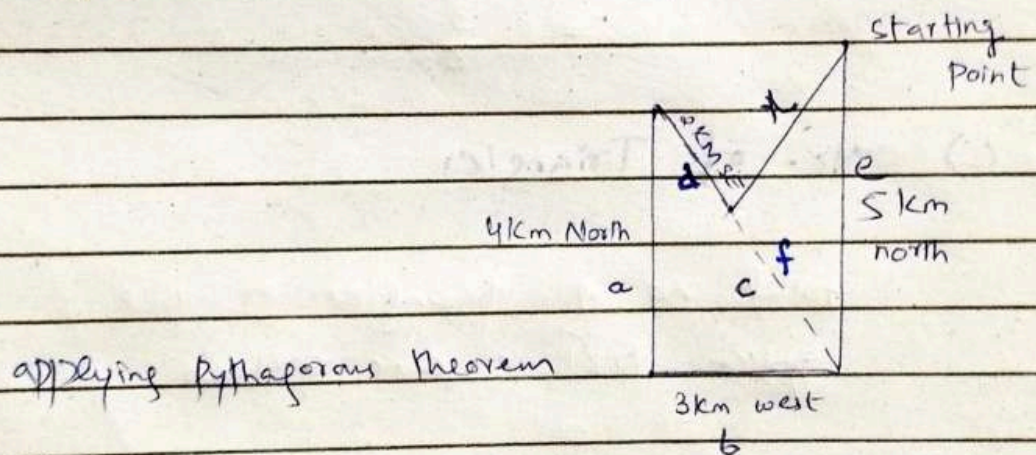 starting
point
x
2 KM SE
d
e
4 Km North
5 km
north
f
a
c
applying pythagorous theorem
3 km west
b